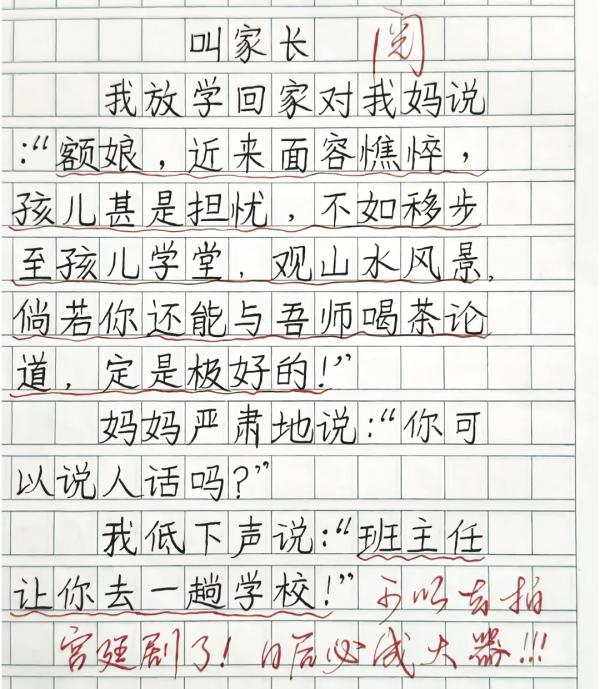 叫家长 阅
我放学回家对我妈说
:“额娘，近来面容憔悴，
孩儿甚是担忧，不如移步
至孩儿学堂，观山水风景。
倘若你还能与吾师喝茶论
道，定是极好的!”
妈妈严肃地说:“你可
以说人话吗?”
我低下声说:“班主任
让你去一趟学校!” 可以去拍
宫廷剧了! 日后必成大器!!!